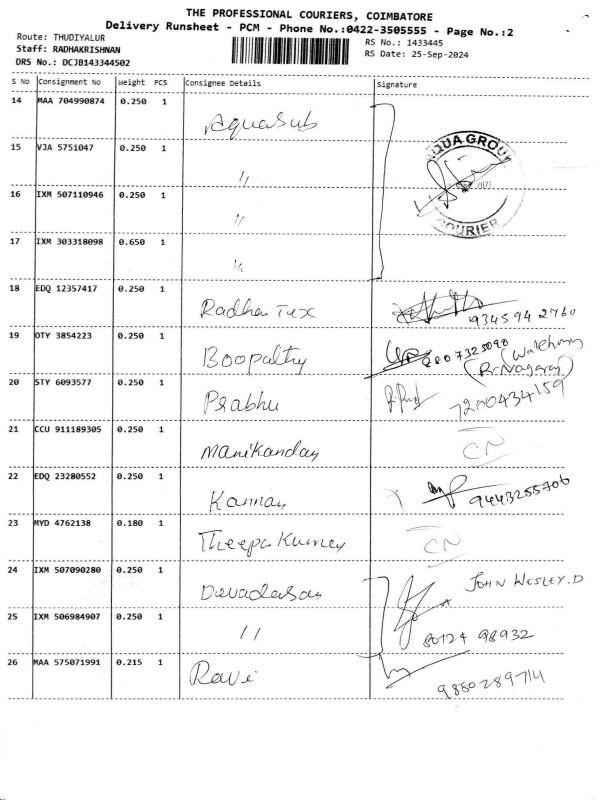 THE PROFESSIONAL COURIERS, COIMBATORE
Delivery Runsheet - PCM - Phone No.:0422-3505555 - Page No.:2
Route: THUDIYALUR
RS No.: 1433445
Staff: RADHAKRISHNAN
RS Date: 25-Sep-2024
DRS No.: DCJB143344502
S No Consignment No Weight PCS Consignee Details Signature
14 MAA 704990874 0.250 1 AquaSub
15 VJA 5751047 0.250 1 "
AQUA GROUP
COURIER
16 IXM 507110946 0.250 1 "
17 IXM 303318098 0.650 1 "
18 EDQ 12357417 0.250 1 Radha Tex 93459 42760
19 OTY 3854223 0.250 1 Boopalthy
20 STY 6093577 0.250 1 Prabhu
21 CCU 911189305 0.250 1 Manikandan CN
22 EDQ 23280552 0.250 1 Kannan 9443255706
23 MYD 4762138 0.180 1 CN
24 IXM 507090280 0.250 1 Devadasan JOHN WESLEY.D
25 IXM 506984907 0.250 1 " 80124 98932
26 MAA 575071991 0.215 1 Ravi 9880289714